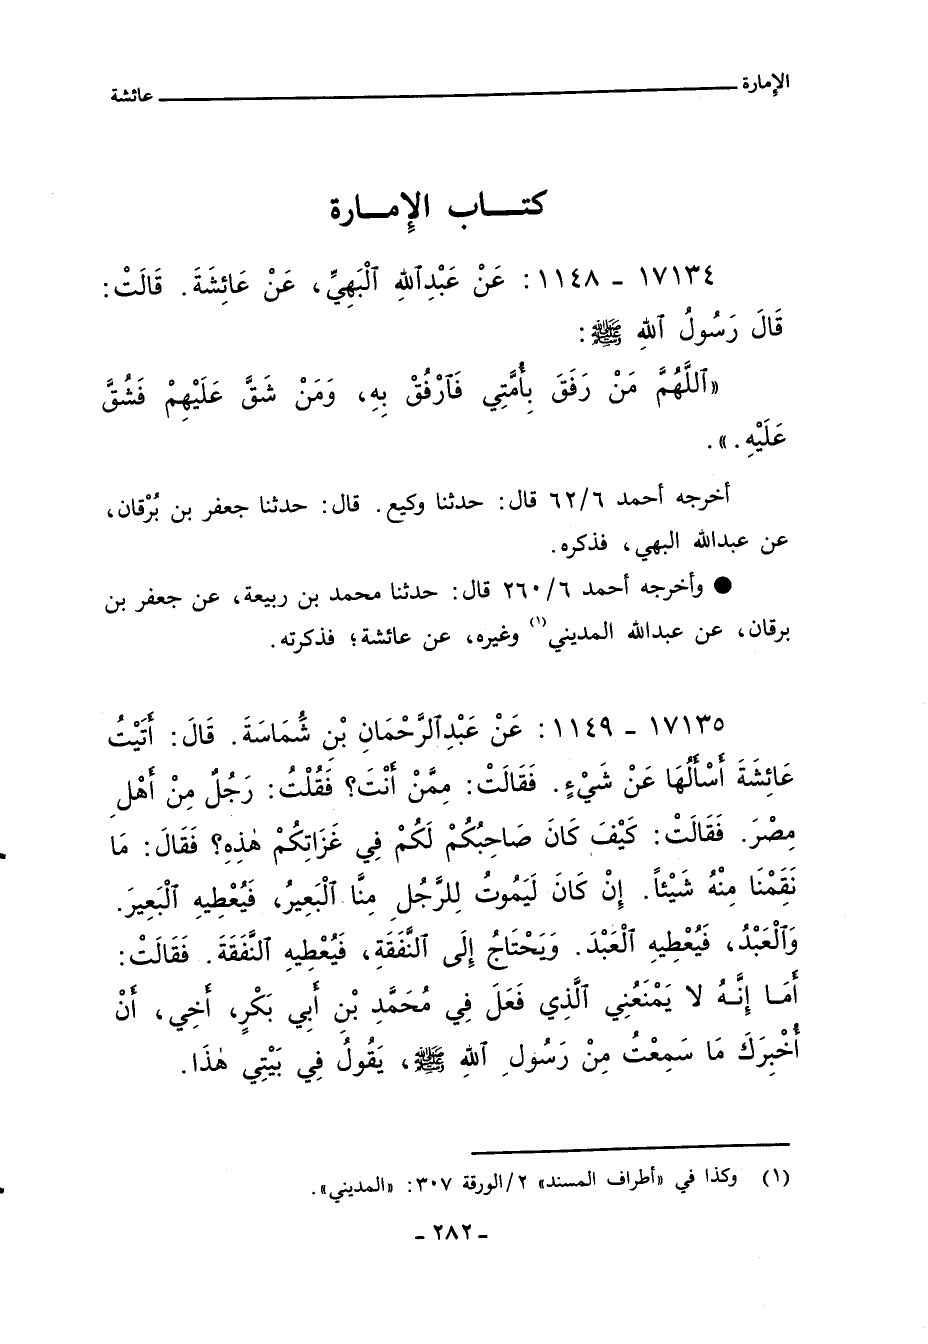 الإمارة عائشة
كتاب الإمارة
١٧١٣٤ - ١١٤٨ : عَنْ عَبْدِ ٱللهِ ٱلْبَهِيِّ، عَنْ عَائِشَةَ. قَالَتْ:
قَالَ رَسُولُ ٱللهِ ﷺ:
«ٱللَّهُمَّ مَنْ رَفَقَ بِأُمَّتِي فَٱرْفُقْ بِهِ، وَمَنْ شَقَّ عَلَيْهِمْ فَشُقَّ
عَلَيْهِ.».
أخرجه أحمد ٦٢/٦ قال: حدثنا وكيع. قال: حدثنا جعفر بن بُرْقان،
عن عبدالله البهي، فذكره.
● وأخرجه أحمد ٢٦٠/٦ قال: حدثنا محمد بن ربيعة، عن جعفر بن
برقان، عن عبدالله المديني(١) وغيره، عن عائشة؛ فذكرته.
١٧١٣٥ - ١١٤٩ : عَنْ عَبْدِ ٱلرَّحْمَانِ بْنِ شُمَاسَةَ. قَالَ: أَتَيْتُ
عَائِشَةَ أَسْأَلُهَا عَنْ شَيْءٍ. فَقَالَتْ: مِمَّنْ أَنْتَ؟ فَقُلْتُ: رَجُلٌ مِنْ أَهْلِ
مِصْرَ. فَقَالَتْ: كَيْفَ كَانَ صَاحِبُكُمْ لَكُمْ فِي غَزَاتِكُمْ هٰذِهِ؟ فَقَالَ: مَا
نَقَمْنَا مِنْهُ شَيْئاً. إِنْ كَانَ لَيَمُوتُ لِلرَّجُلِ مِنَّا ٱلْبَعِيرُ، فَيُعْطِيهِ ٱلْبَعِيرَ.
وَٱلْعَبْدُ، فَيُعْطِيهِ ٱلْعَبْدَ. وَيَحْتَاجُ إِلَى ٱلنَّفَقَةِ، فَيُعْطِيهِ ٱلنَّفَقَةَ. فَقَالَتْ:
أَمَا إِنَّهُ لا يَمْنَعُنِي ٱلَّذِي فَعَلَ فِي مُحَمَّدِ بْنِ أَبِي بَكْرٍ، أَخِي، أَنْ
أُخْبِرَكَ مَا سَمِعْتُ مِنْ رَسُولِ ٱللهِ ﷺ، يَقُولُ فِي بَيْتِي هٰذَا.
(١) وكذا في «أطراف المسند» ٢/الورقة ٣٠٧: «المديني».
- ٢٨٢ -